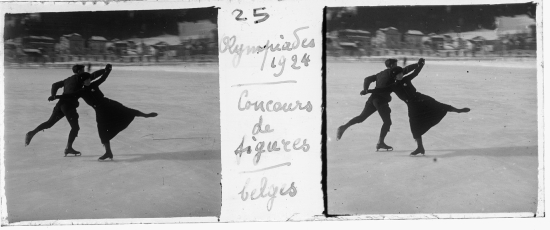 25
Olympiades
1924
Concours
de
figures
belges